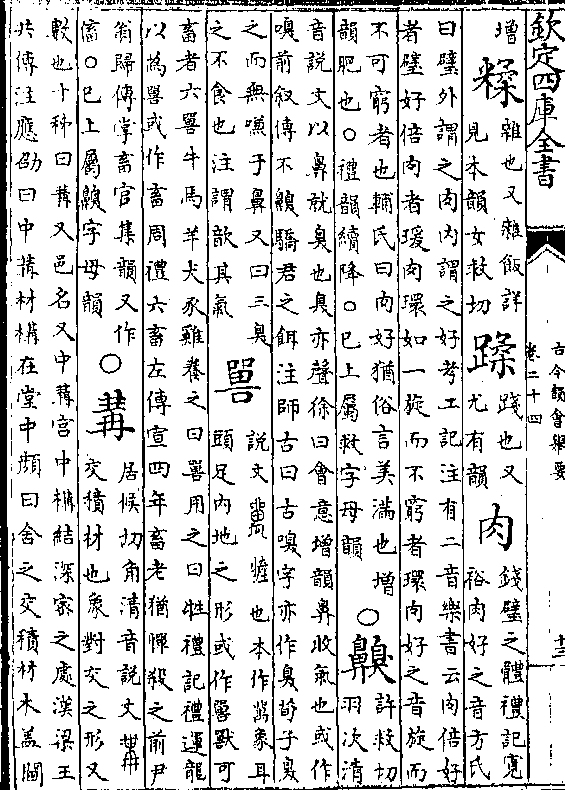 欽定四庫全書
古今韻會舉要
卷二十四
十三
增
糅
雜也又雜飯詳
見本韻女救切
蹂
踐也又
尤有韻
肉
錢璧之體禮記寛
裕肉好之音方氏
曰璧外謂之肉内謂之好考工記注有二音樂書云肉倍好
者璧好倍肉者瑗肉環如一旋而不窮者環肉好之音旋而
不可窮者也輔氏曰肉好猶俗言美滿也增
韻肥也○禮韻續降○已上屬救字母韻
○齅
許救切
羽次清
音說文以鼻就臭也臭亦聲徐曰會意增韻鼻收氣也或作
嗅前叙傳不齅驕君之餌注師古曰古嗅字亦作臭荀子臭
之而無嗛于鼻又曰三臭
之不食也注謂歆其氣
嘼
說文嘼也本作象耳
頭足内地之形或作嘼獸可
畜者六嘼牛馬羊犬豕雞養之曰嘼用之曰牲禮記禮運龍
以為嘼或作畜周禮六畜左傳宣四年畜老猶憚殺之前尹
翁歸傳掌畜官集韻又作
畜○已上屬齅字母韻
○冓
居候切角清音說文冓
交積材也象對交之形又
數也十秭曰冓又邑名又中冓宫中構結深宻之處漢梁王
共傳注應劭曰中冓材構在堂中曰舍之交積材木葢閫